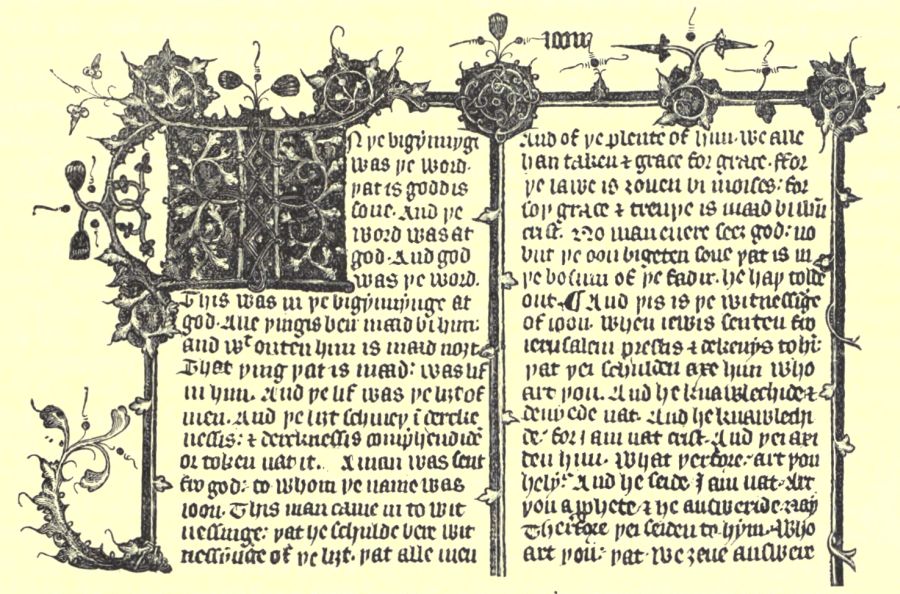 ioon
IN ye bigynnyge
was ye word.
yat is goddis
sone. And ye
word was at
god. And god
was ye word.
This was in ye bigynnynge at
god. Alle yingis ben maad bi him:
and wt outen him is maad noȝt.
That ying yat is maad: was lif
in him. And ye lif was ye liȝt of
men. And ye liȝt schiney ī derke
nessis: & derknessis comprehendidē
or token nat it. A man was sent
fro god: to whom ye name was
ioon. This man came in to wit
nessinge: yat he schulde bere wit
nessynge of ye liȝt. yat alle men
And of ye plente of him. we alle
han taken & grace for grace. ffor
ye lawe is ȝouen bi moises: for
soy grace & treuye is maad bi ihū
crist. No man euere seeȝ god: no
but ye oon bigeten sone yat is in
ye bosum of ye fadir. he hay tolde
out. And yis is ye witnessige
of ioon. When iewis senten fro
ierusalem prestis & dekenys to hī:
yat yei schulden axe him Who
art you. And he knawlechide &
denyede nat. And he knawlech
de: for I am nat crist. And yei axi
den him. What yerfore: art you
hely? And he seide. I am nat. Art
you a pphete? & he answeride. Nay
Therfore yei seiden to hym. Who
art you: yat we ȝeue answere